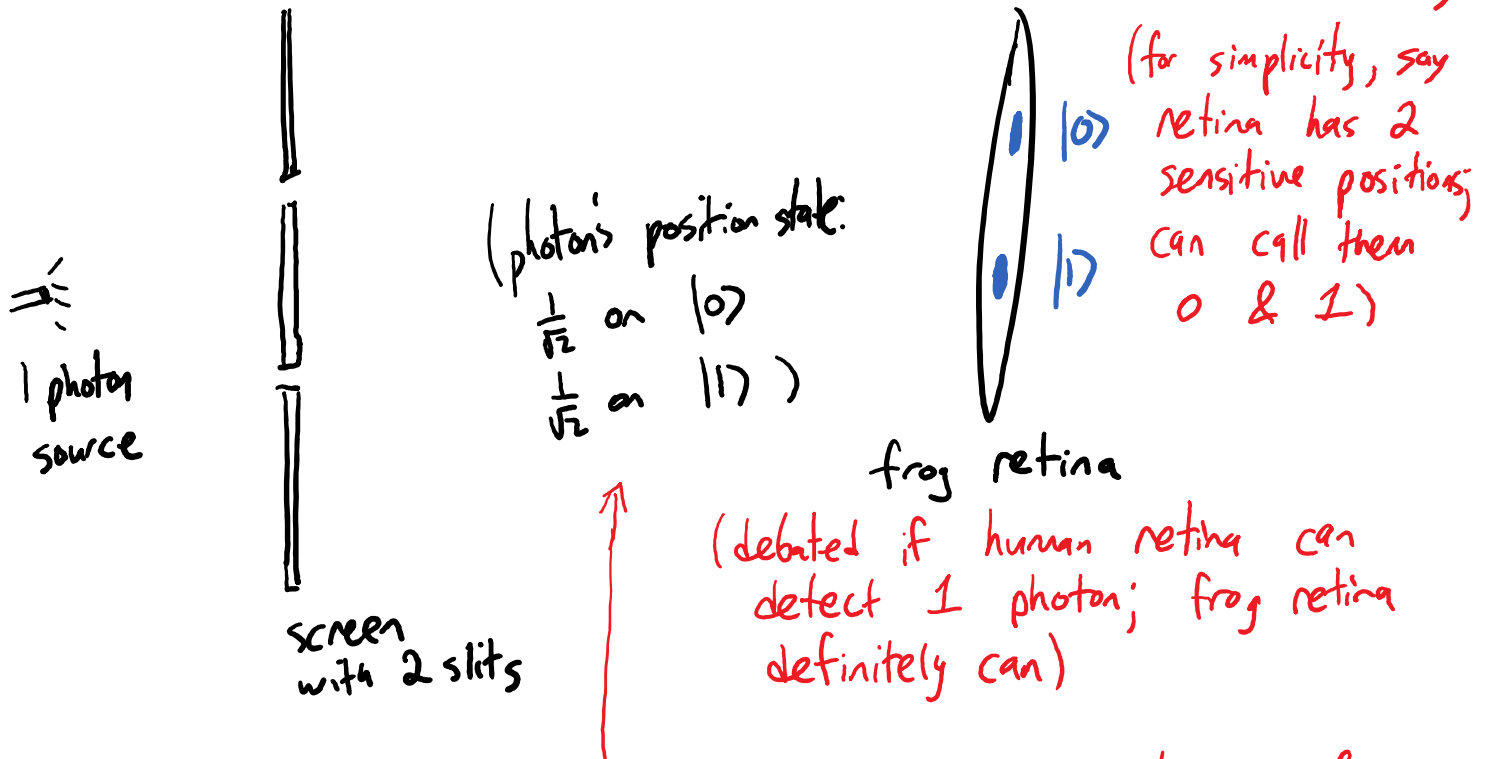 1 photon
source
screen
with 2 slits
(photon's position state:
1/√2 on |0⟩
1/√2 on |1⟩ )
|0⟩
|1⟩
(for simplicity, say
retina has 2
sensitive positions;
can call them
0 & 1)
frog retina
(debated if human retina can
detect 1 photon; frog retina
definitely can)